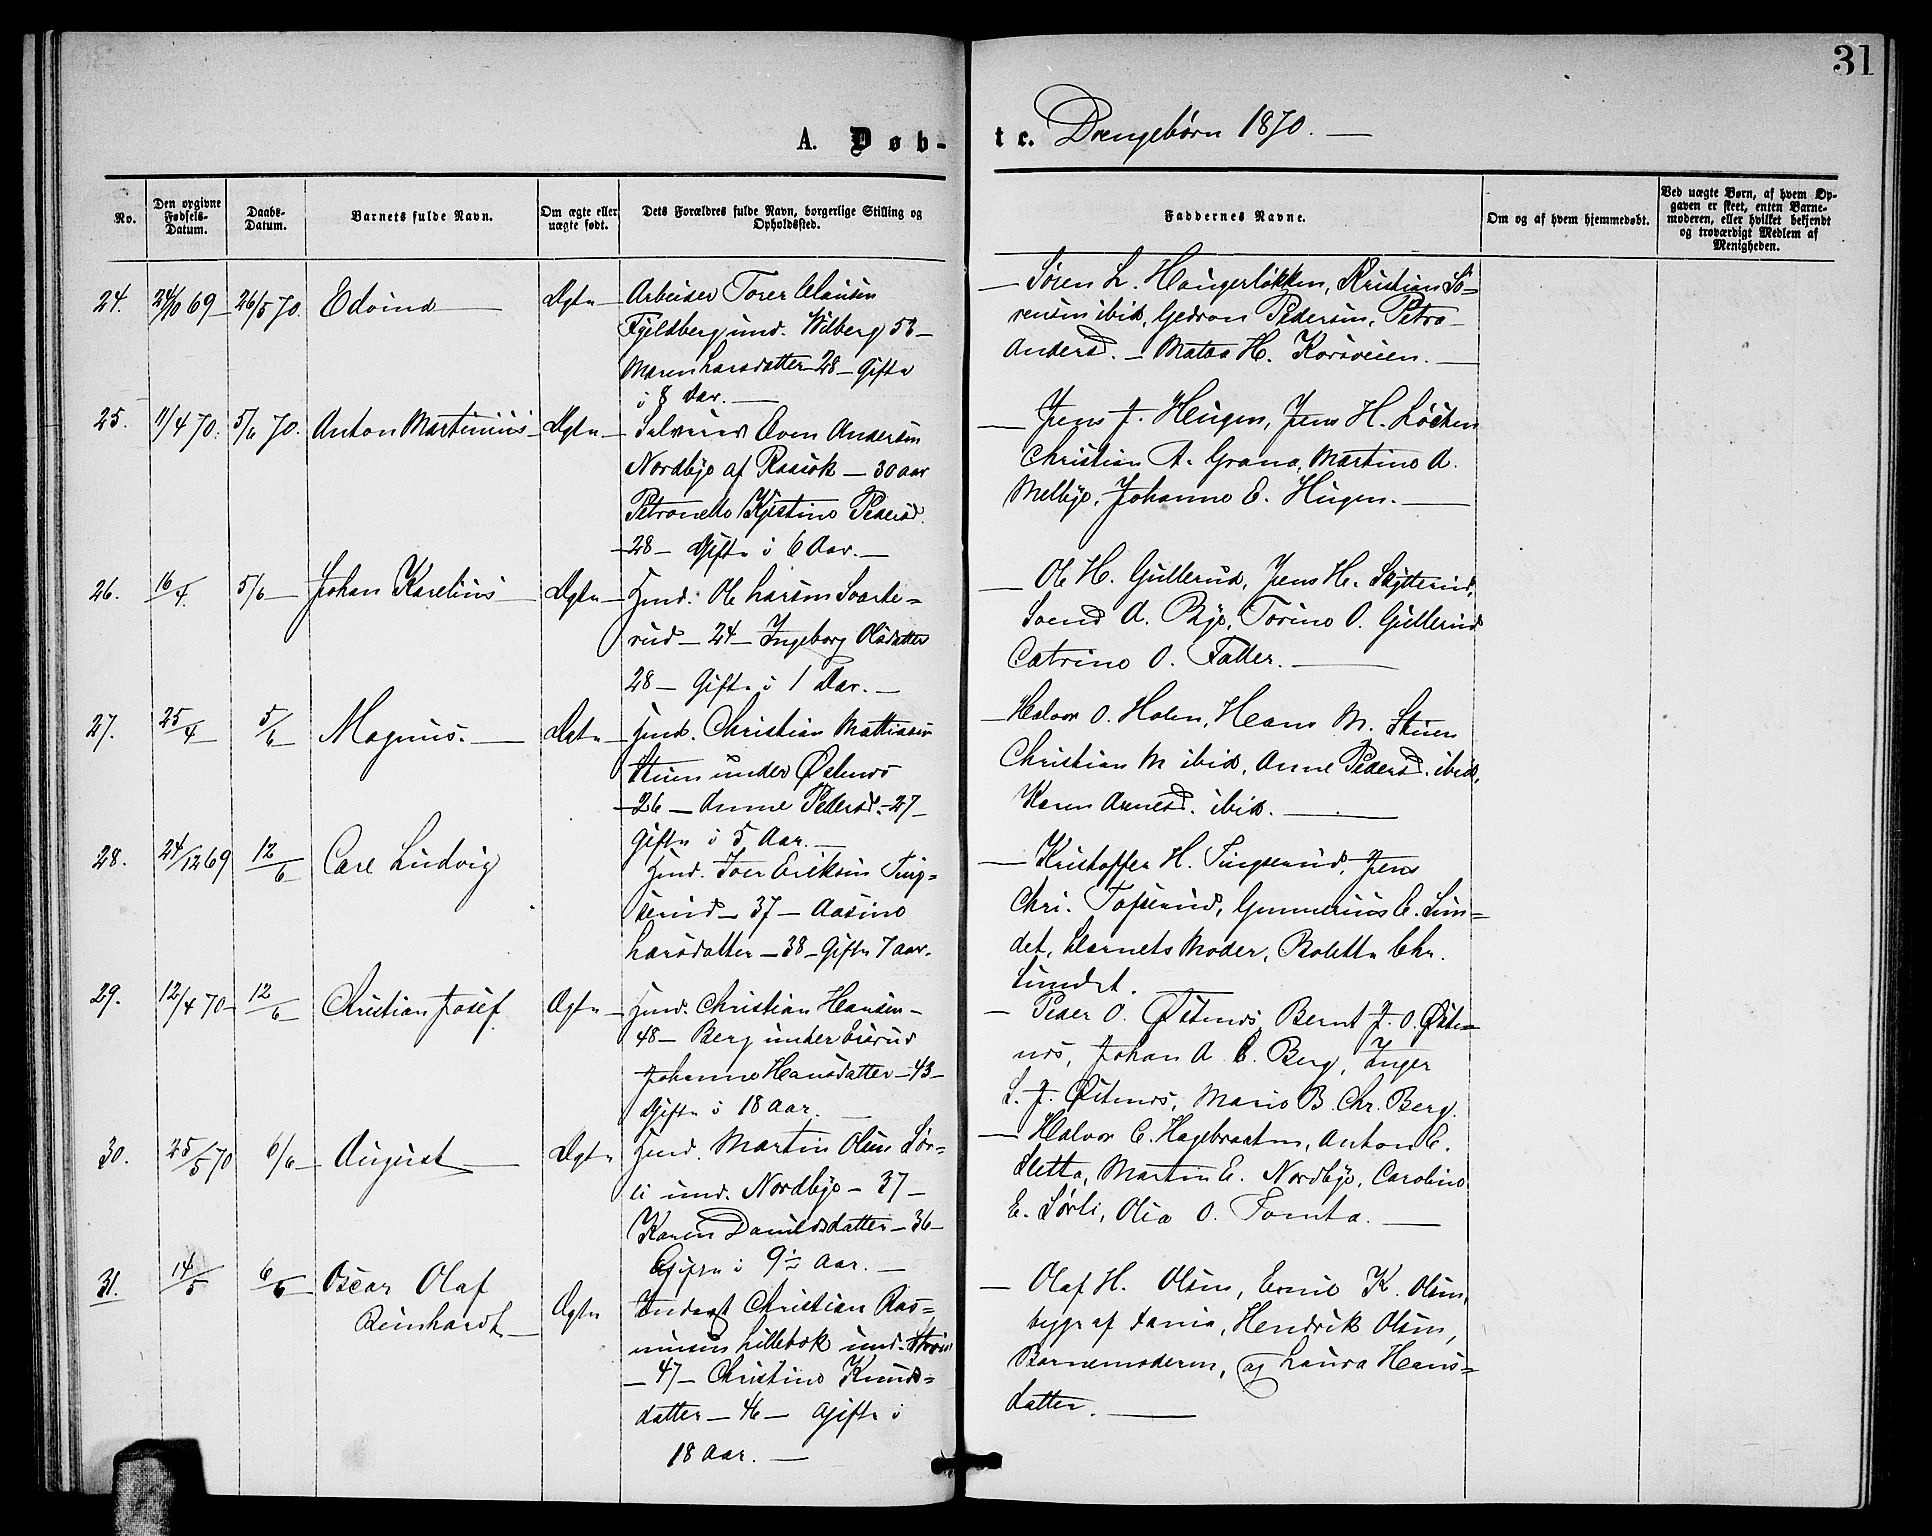 31
A. Døb-
te. Drengebørn 1870. —
No.
Den opgivne Fødsels-Datum.
Daabs-Datum.
Barnets fulde Navn.
Om ægte eller uægte født.
Dets Forældres fulde Navn, borgerlige Stilling og Opholdssted.
Faddernes Navne.
Om og af hvem hjemmedøbt.
Ved uægte Børn, af hvem Opgaven er skeet, enten Barnemoderen, eller hvilket bekjendt og troværdigt Medlem af Menigheden.
24. 24/10 69 — 26/5 70. Edvind — Ægte —
Arbeider Torer Clausen
Fjeldberg und. Wilberg 56 —
Maren Larsdatter 28 — Gifte
i 8 Aar. —
— Søren L. Haugerløkken, Kristian Sø=
rensen ibid, Pedersen, Petra
Andersd. — H. Korsveien. —
25. 11/4 70. 5/6 70. Anton Martinius — Ægte —
Selveier Even Andersen
Nordbye af — 30 aar
Petronelle Kjestine Pedersd.
— 28 — Gifte i 6 Aar. —
— Jens J. Heugen, Jens H. Løcken
Christian A. Grana, Martine A.
Melbye, Johanne E. Hugen. —
26. 16/4 5/6 — Johan Karelius — Ægte —
Hmd. Ole Larsen Svarte=
rud — 24 — Ingeborg Olsdatter
28 — Gifte i 1 Aar. —
— Ole H. Gullerud, Jens H. Skytterud,
Svend A. Bye, Torine O. Gullerud
Catrine O. Faller. —
27. 25/4 5/6 Magnus. — Ægte —
Hmd. Christian Mattiasen
Stuen under Østenes
— 26 — Anne Pedersd. — 27 —
Gifte i 5 Aar. —
— Halvor O. Holen, Hans M. Stuen
Christian M ibid, Anne Pedersd. ibid,
Karen Arnesd. ibid. —
28. 24/12 69 12/6 Carl Ludvig
Hmd. Iver Eriksen Ting=
serud — 37 — Aasine
Larsdatter — 38 — Gifte 7 aar.
— Kristoffer H. Tingserud, Jens
Chr. Tofserud, Gunnerius C. Lun=
det, Barnets Moder, Bolette Chr.
Lundet.
29. 12/4 70 — 12/6 Christian Josef. Ægte —
Hmd. Christian Hansen —
48 — Berg under
Johanne Hansdatter — 43 —
Gifte i 18 Aar. —
— Peder O. Østenes Bernt J. O. Øste=
nes, Johan A. C. Berg, Inger
L. J. Østenes, Marie B. Chr. Berg.
30. 25/5 70 6/6 — August — Ægte
Hmd. Martin Olsen Sør=
li und. Nordbye — 37 —
Karen Danielsdatter — 36 —
Gifte i 9½ Aar. —
— Halvor C. Hagebraaten, Anton C.
Sletta, Martin E. Nordbye, Caroline
E. Sørli, Olia O. Tomta. —
31. 14/5 6/6 Oscar Olaf
Reinhardt — Ægte
Inderst Christian Ras=
musen Lillebæk und.
— 47 — Christine Knuds=
datter — 46 — Gifte i
18 Aar. —
— Olaf H. Olsen, Emil K. Olsen,
begge af Hendrik Olsen,
Barnemoderen, og Laura Hans=
datter. —